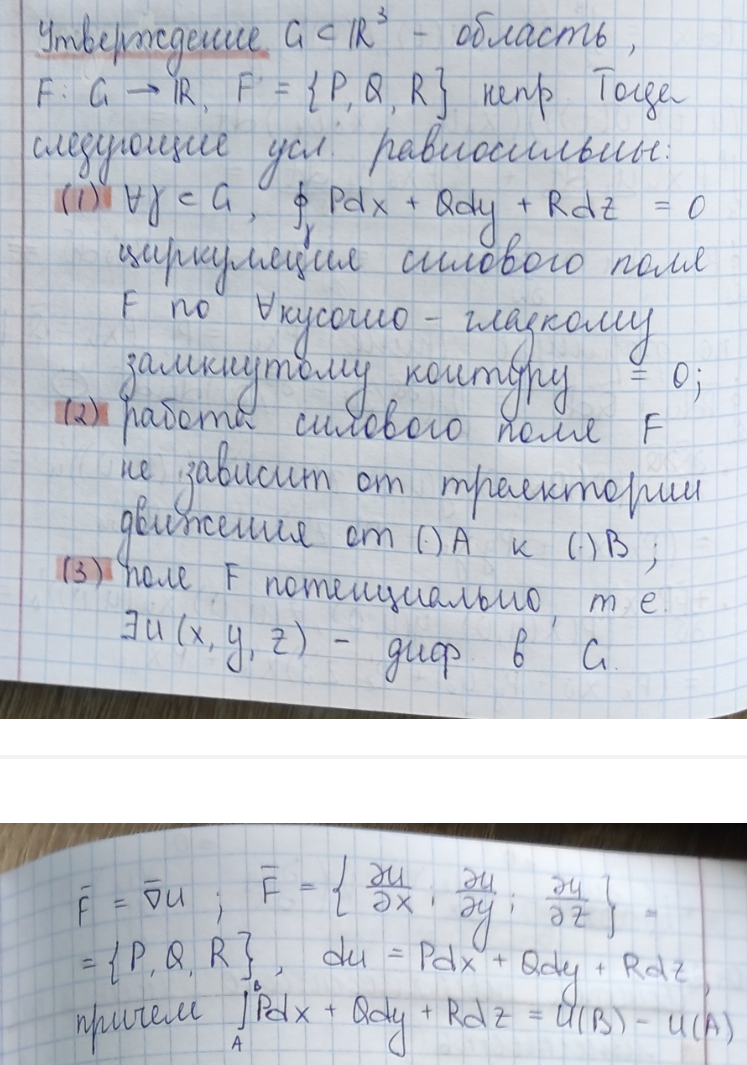 Утверждение G ⊂ ℝ³ - область,
F: G → ℝ, F = {P, Q, R} непр Тогда
следующие усл. равносильны:
(1) ∀γ ⊂ G, ∮_γ Pdx + Qdy + Rdz = 0
циркуляция силового поля
F по ∀кусочно - гладкому
замкнутому контуру = 0;
(2) работа силового поля F
не зависит от траектории
движения от (·)A к (·)B;
(3) поле F потенциально, т е.
∃u(x, y, z) - диф в G.
F̄ = ∇̄u ; F̄ = {∂u/∂x ; ∂u/∂y ; ∂u/∂z} =
= {P, Q, R}, du = Pdx + Qdy + Rdz,
причем ∫_A^B Pdx + Qdy + Rdz = U(B) - U(A)